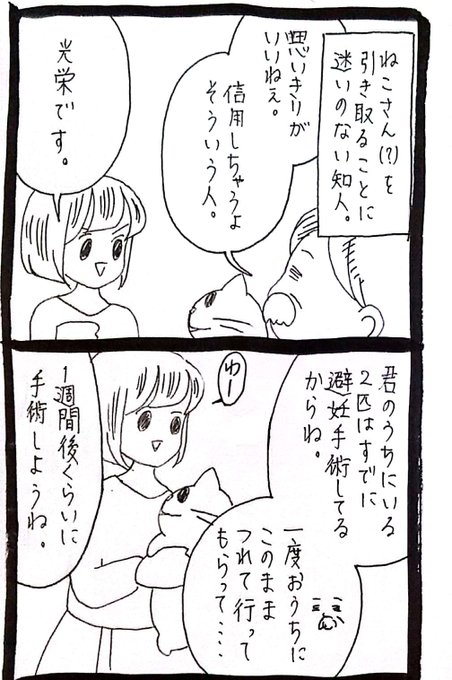 ねこさん(?)を
引き取ることに
迷いのない知人。
思いきりが
いいねぇ。
信用しちゃうよ
そういう人。
光栄です。
君のうちにいる
2匹はすでに
避妊手術してる
からね。
一度おうちに
このまま
つれて行って
もらって‥‥
ゆー
1週間後くらいに
手術しようね。